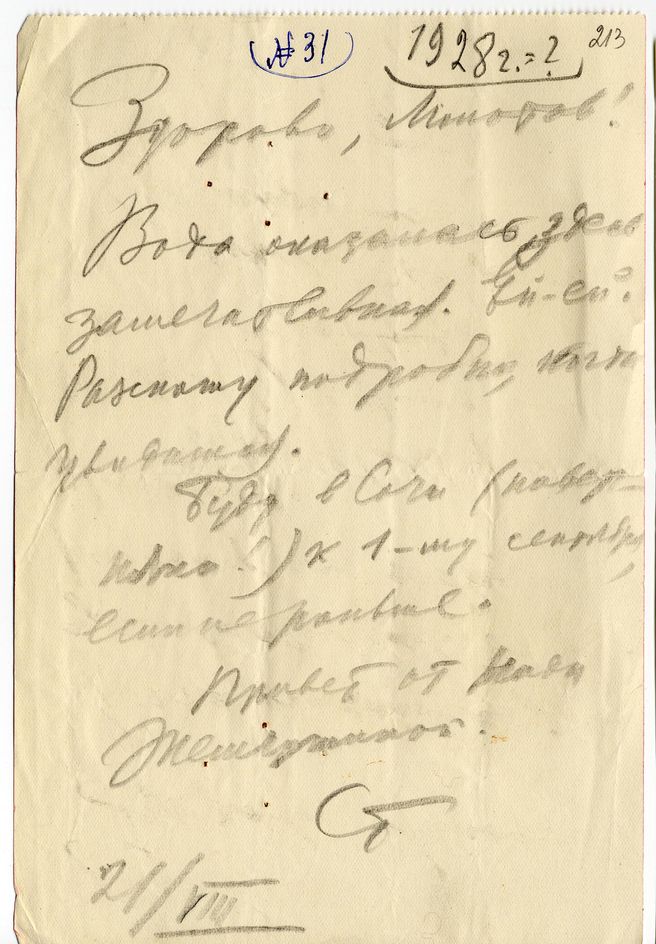 № 31
1928 г. = ?
213
Здорово, Молотов!
Вода оказалась здесь
замечательная. Ей-ей.
Расскажу подробно, когда
увидимся.
Буду в Сочи
к 1-му сентября,
если не раньше.
Привет от Нади
Жемчужиной.
Ст
21/VIII